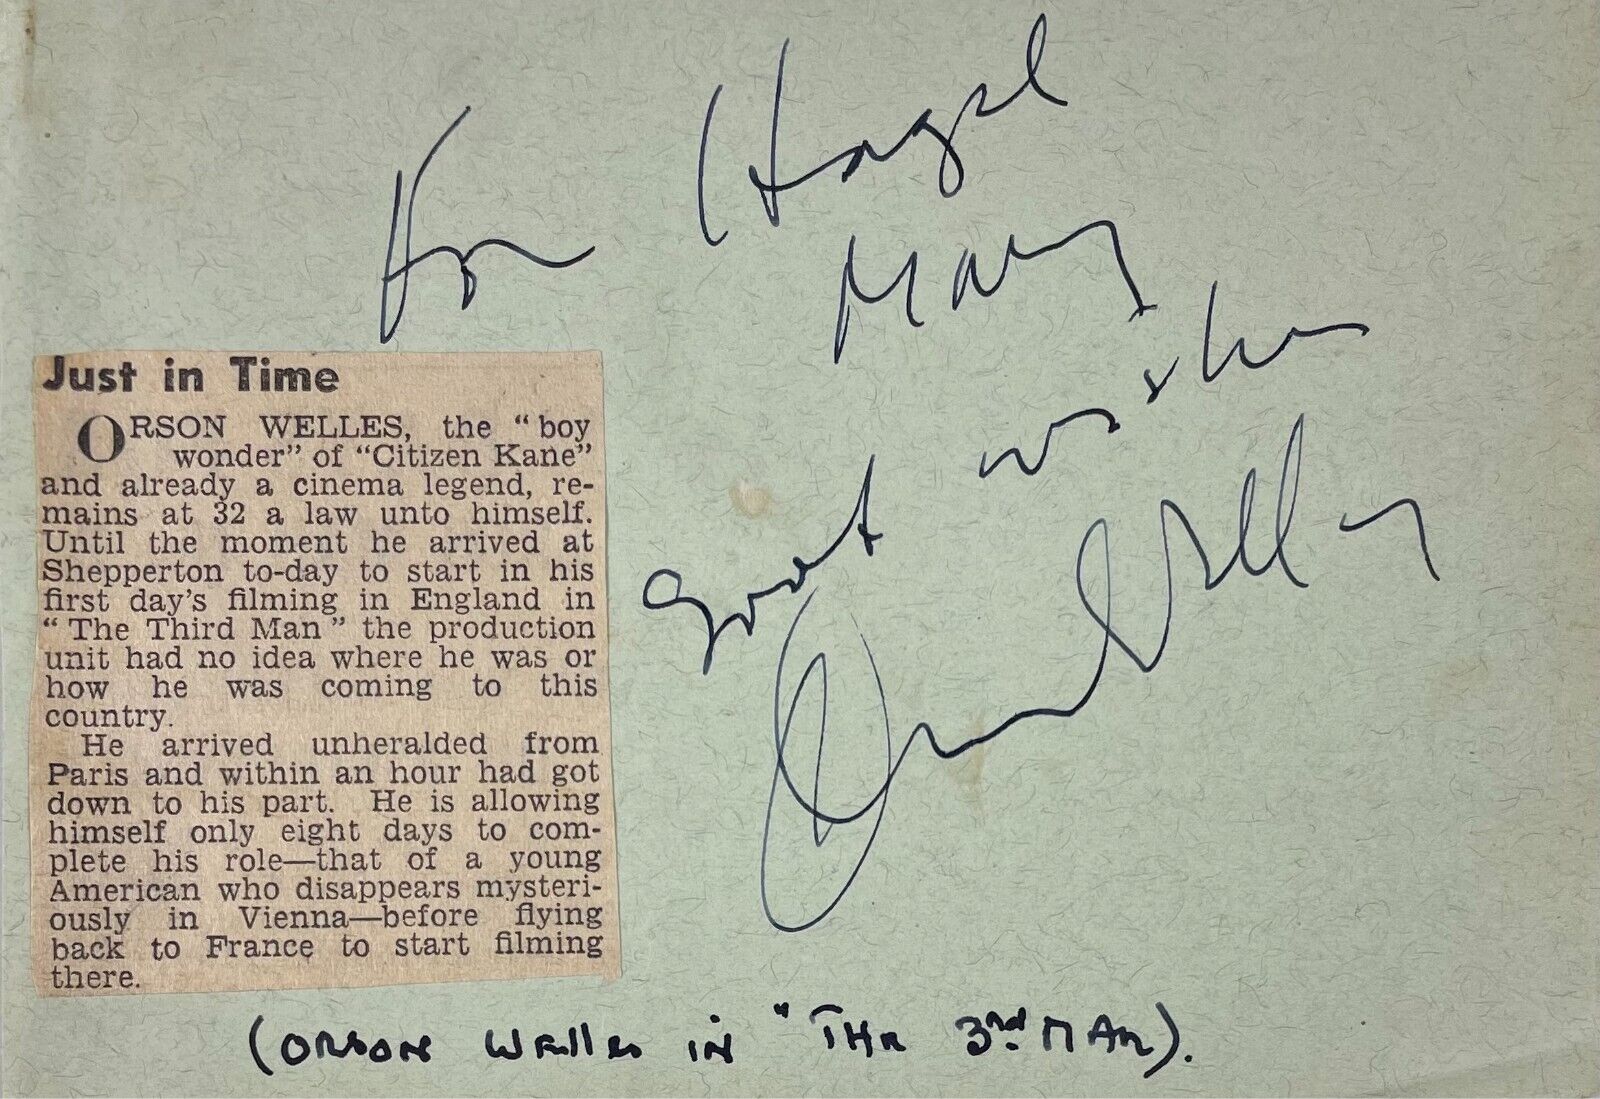 For Hazel
Many
great wishes
Orson Welles
Just in Time
ORSON WELLES, the "boy
wonder" of "Citizen Kane"
and already a cinema legend, re-
mains at 32 a law unto himself.
Until the moment he arrived at
Shepperton to-day to start in his
first day's filming in England in
"The Third Man" the production
unit had no idea where he was or
how he was coming to this
country.
He arrived unheralded from
Paris and within an hour had got
down to his part. He is allowing
himself only eight days to com-
plete his role—that of a young
American who disappears mysteri-
ously in Vienna—before flying
back to France to start filming
there.
(ORSON Welles in "THE 3rd. MAN).